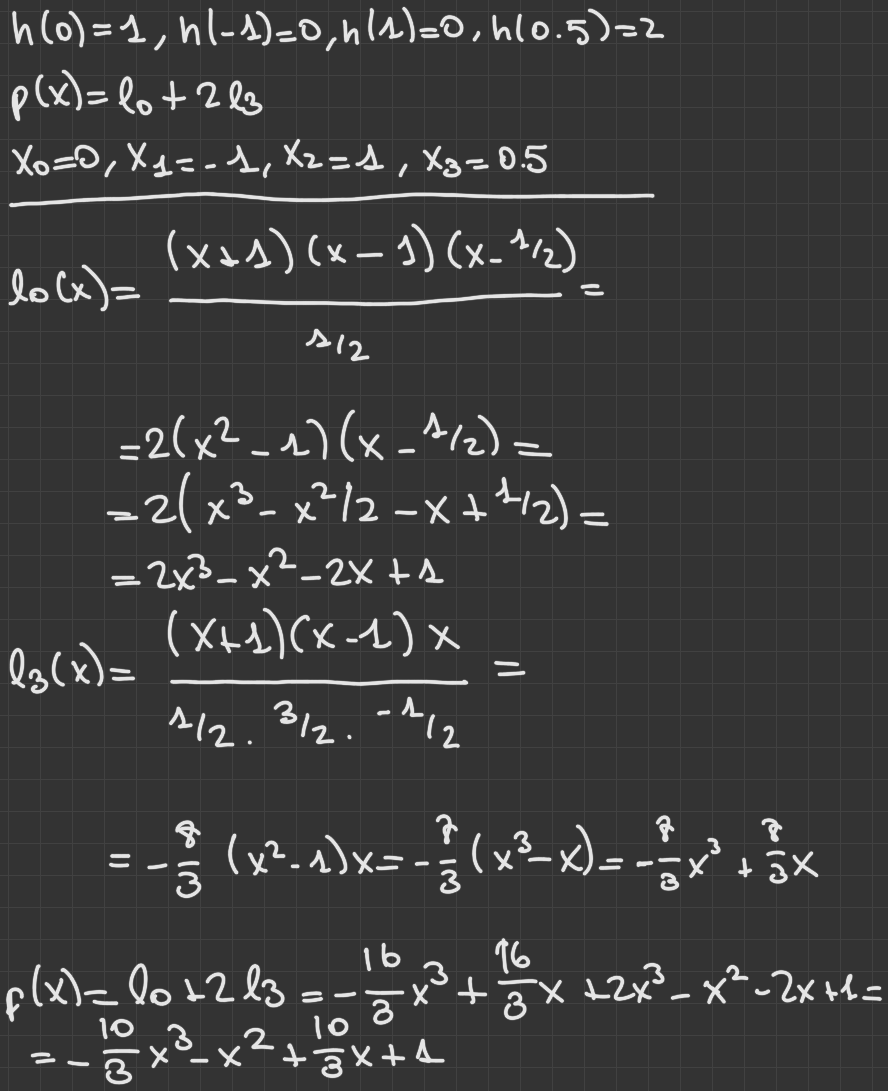 h(0)=1, h(-1)=0, h(1)=0, h(0.5)=2
p(x)=l₀+2l₃
x₀=0, x₁=-1, x₂=1, x₃=0.5
l₀(x)= (x+1)(x-1)(x-1/2) / 1/2 =
=2(x²-1)(x-1/2)=
=2(x³-x²/2-x+1/2)=
=2x³-x²-2x+1
l₃(x)= (x+1)(x-1)x / 1/2 · 3/2 · -1/2 =
= -8/3 (x²-1)x= -8/3 (x³-x)= -8/3 x³ + 8/3 x
p(x)= l₀+2l₃ = -16/3 x³ + 16/3 x +2x³-x²-2x+1=
= -10/3 x³-x²+10/3 x+1